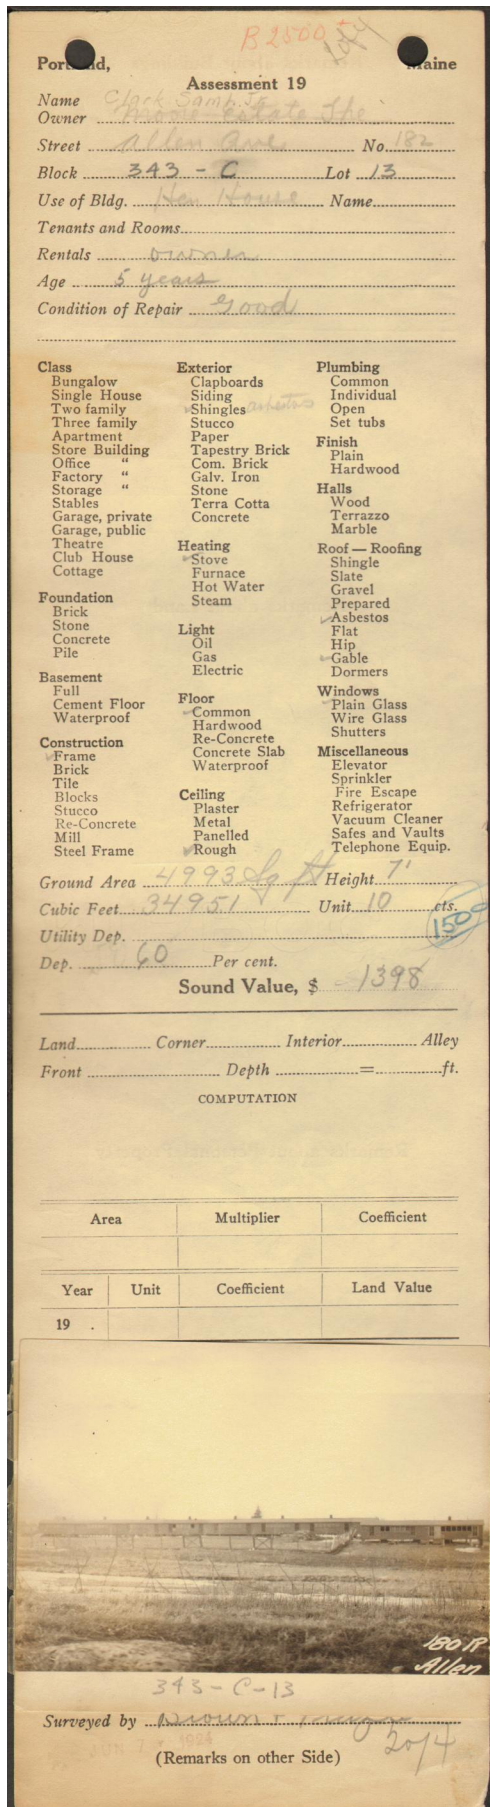 B 2500
Portland, Maine
Assessment 19
Name Clark Saml. Jr
Owner Moore Estate The
Street Allen Ave No. 182
Block 343 - C Lot 13
Use of Bldg. Hen House Name
Tenants and Rooms
Rentals owner
Age 5 years
Condition of Repair Good
Class
Bungalow
Single House
Two family
Three family
Apartment
Store Building
Office "
Factory "
Storage "
Stables
Garage, private
Garage, public
Theatre
Club House
Cottage
Foundation
Brick
Stone
Concrete
Pile
Basement
Full
Cement Floor
Waterproof
Construction
Frame
Brick
Tile
Blocks
Stucco
Re-Concrete
Mill
Steel Frame
Exterior
Clapboards
Siding
Shingles asbestos
Stucco
Paper
Tapestry Brick
Com. Brick
Galv. Iron
Stone
Terra Cotta
Concrete
Heating
Stove
Furnace
Hot Water
Steam
Light
Oil
Gas
Electric
Floor
Common
Hardwood
Re-Concrete
Concrete Slab
Waterproof
Ceiling
Plaster
Metal
Panelled
Rough
Plumbing
Common
Individual
Open
Set tubs
Finish
Plain
Hardwood
Halls
Wood
Terrazzo
Marble
Roof — Roofing
Shingle
Slate
Gravel
Prepared
Asbestos
Flat
Hip
Gable
Dormers
Windows
Plain Glass
Wire Glass
Shutters
Miscellaneous
Elevator
Sprinkler
Fire Escape
Refrigerator
Vacuum Cleaner
Safes and Vaults
Telephone Equip.
Ground Area 4993 Sq ft Height 7'
Cubic Feet 34951 Unit 10 cts.
1500
Utility Dep.
Dep. 60 Per cent.
Sound Value, $ 1398
Land Corner Interior Alley
Front Depth = ft.
COMPUTATION
Area Multiplier Coefficient
Year Unit Coefficient Land Value
19 .
180 R
Allen
343-C-13
Surveyed by Brown +
1924
2 of 4
(Remarks on other Side)